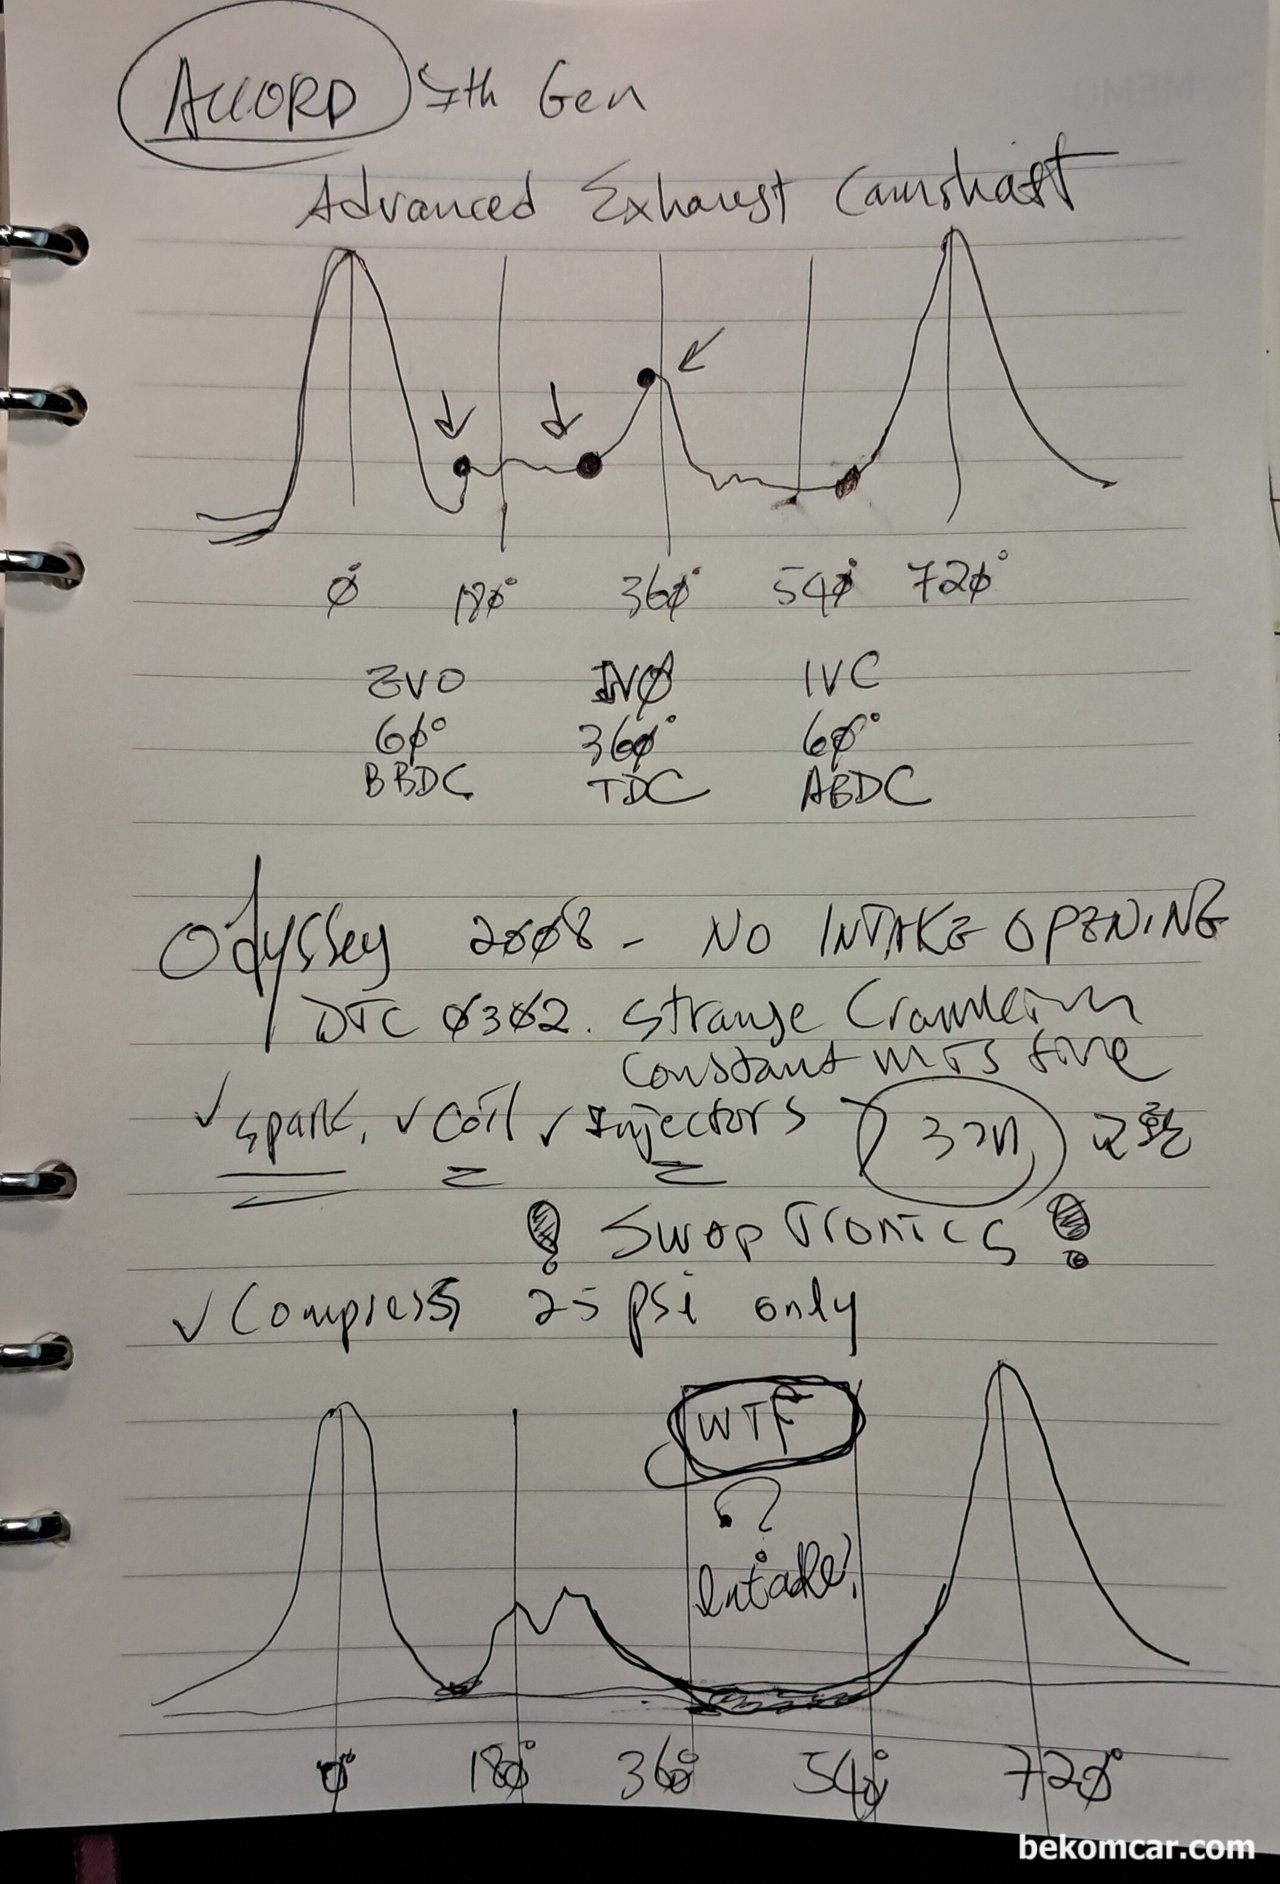 ACCORD 7th Gen
Advanced Exhaust Camshaft
0° 180° 360° 540° 720°
EVO IVO IVC
60° 360° 60°
BBDC TDC ABDC
Odyssey 2008 - NO INTAKE OPENING
DTC 0302. Strange
Constant
✓ spark, ✓ Coil ✓ Injectors 교환
! Swaptronics !
✓ Compress 25 psi only
WTF
?
Intake?
0° 180° 360° 540° 720°
MEMO
bekomcar.com